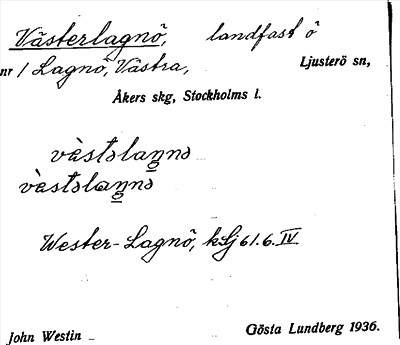 Västerlagnö, landfast ö
nr 1 Lagnö, Västra, Ljusterö sn,
Åkers skg, Stockholms l.
Wester-Lagnö, 61.6. IV
John Westin Gösta Lundberg 1936.